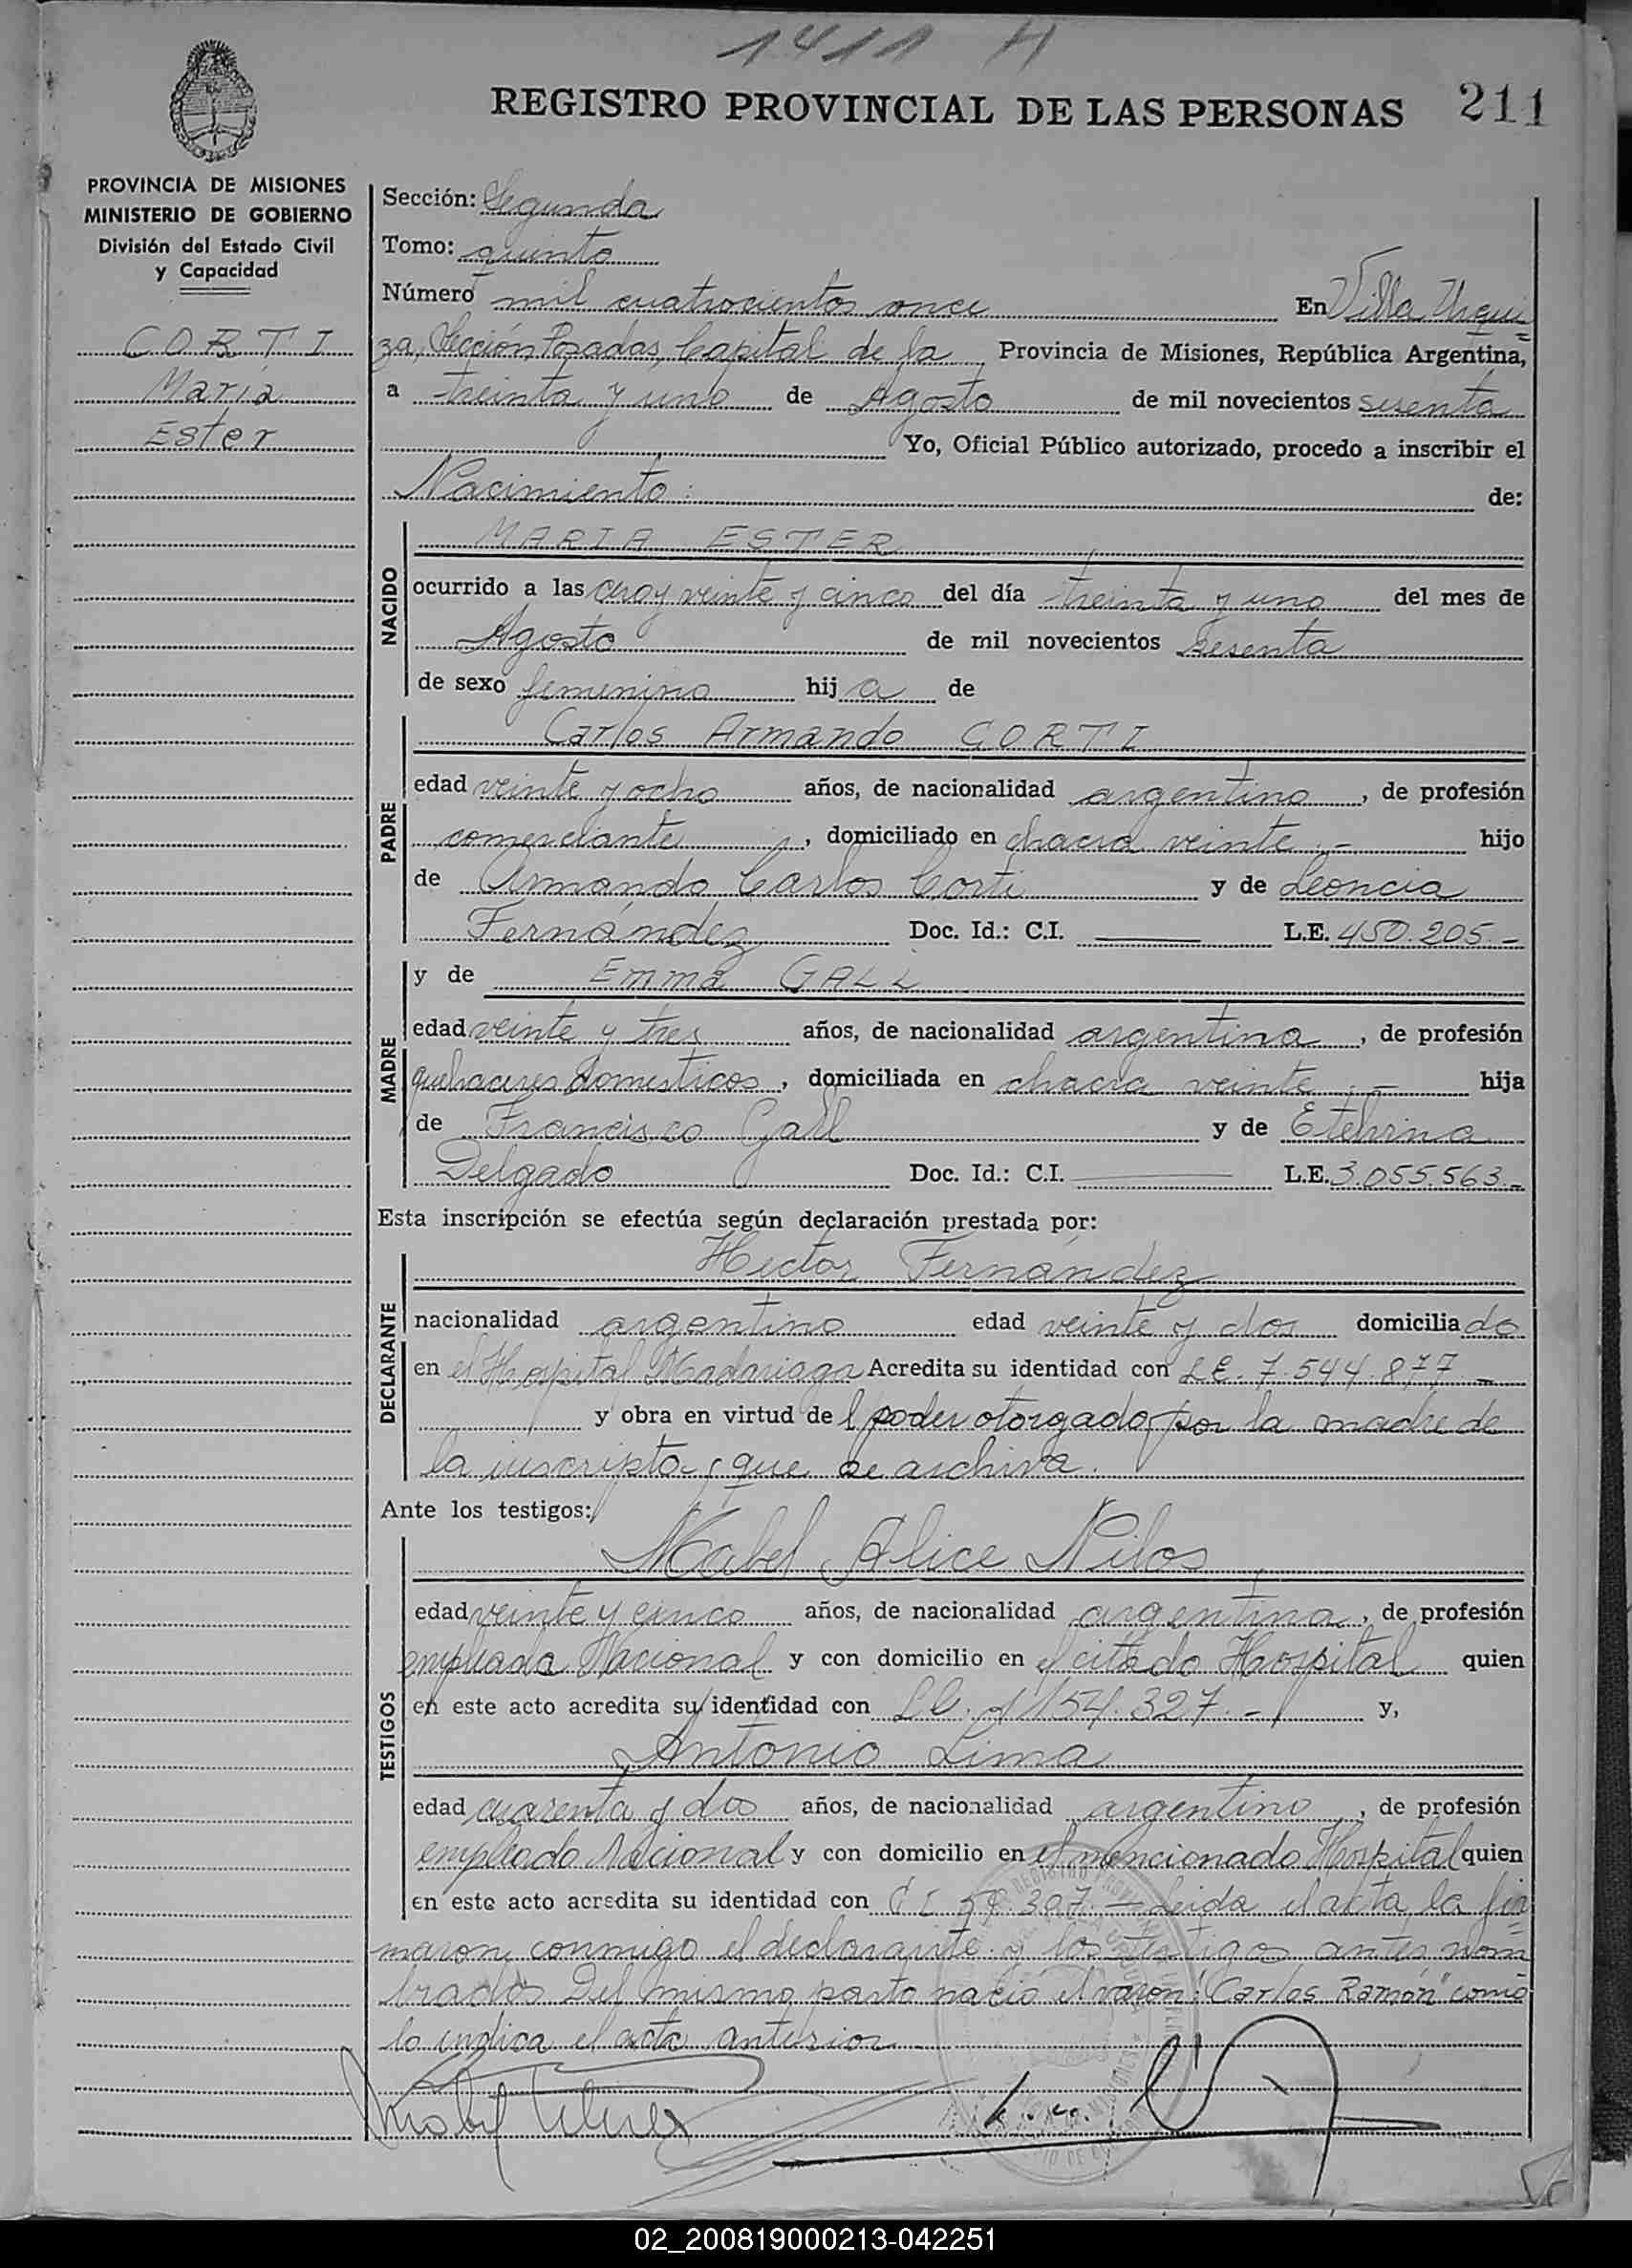 1411 H
REGISTRO PROVINCIAL DE LAS PERSONAS 211
PROVINCIA DE MISIONES
MINISTERIO DE GOBIERNO
División del Estado Civil
y Capacidad
CORTI
María
Ester
Sección: Segunda
Tomo: quinto
Número mil cuatrocientos once En Villa Urqui=
za, Sección Posadas, Capital de la Provincia de Misiones, República Argentina,
a treinta y uno de Agosto de mil novecientos sesenta
Yo, Oficial Público autorizado, procedo a inscribir el
Nacimiento: de:
NACIDO
MARIA ESTER
ocurrido a las cero y veinte y cinco del día treinta y uno del mes de
Agosto de mil novecientos sesenta
de sexo femenino hija de
PADRE
Carlos Armando CORTI
edad veinte y ocho años, de nacionalidad argentino, de profesión
comerciante, domiciliado en chacra veinte.- hijo
de Armando Carlos Corti y de Leoncia
Fernández Doc. Id.: C.I. —— L.E. 450.205.-
MADRE
y de Emma GALL
edad veinte y tres años, de nacionalidad argentina, de profesión
quehaceres domesticos, domiciliada en chacra veinte.- hija
de Francisco Gall y de Etelvina
Delgado Doc. Id.: C.I. —— L.E. 3.055.563.-
Esta inscripción se efectúa según declaración prestada por:
DECLARANTE
Hector Fernández
nacionalidad argentino edad veinte y dos domiciliado
en el Hospital Madariaga Acredita su identidad con L.E. 7.544.877.-
y obra en virtud del poder otorgado por la madre de
la inscripta, que se archiva.
Ante los testigos:
TESTIGOS
Mabel Alice Nilos
edad veinte y cinco años, de nacionalidad argentina, de profesión
empleada Nacional y con domicilio en el citado Hospital quien
en este acto acredita su identidad con L.C. 1154.327.- y,
Antonio Lima
edad cuarenta y dos años, de nacionalidad argentino, de profesión
empleado Nacional y con domicilio en el mencionado Hospital quien
en este acto acredita su identidad con C I 307.- Leida el acta, la fir=
maron conmigo el declarante y los testigos antes nom
brados Del mismo parto nació el varon: "Carlos Ramón" como
lo indica el acta anterior
02_200819000213-042251